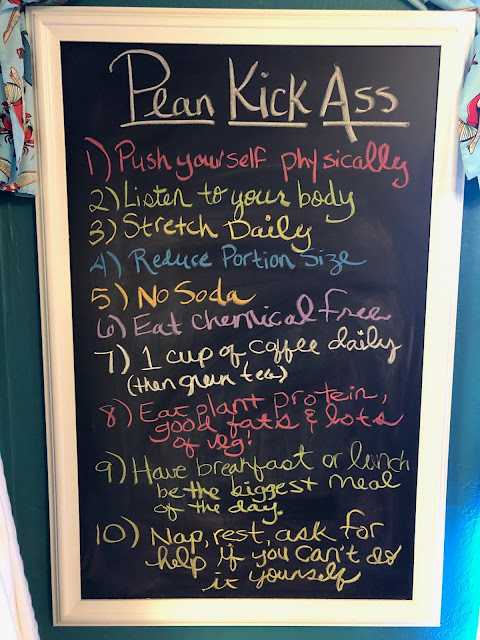 Plan Kick Ass
1) Push yourself physically
2) Listen to your body
3) Stretch Daily
4) Reduce Portion Size
5) No Soda
6) Eat chemical free
7) 1 cup of coffee daily
(then green tea)
8) Eat plant protein,
good fats & lots
of veg!
9) Have breakfast or lunch
be the biggest meal
of the day.
10) Nap, rest, ask for
help if you can't do
it yourself